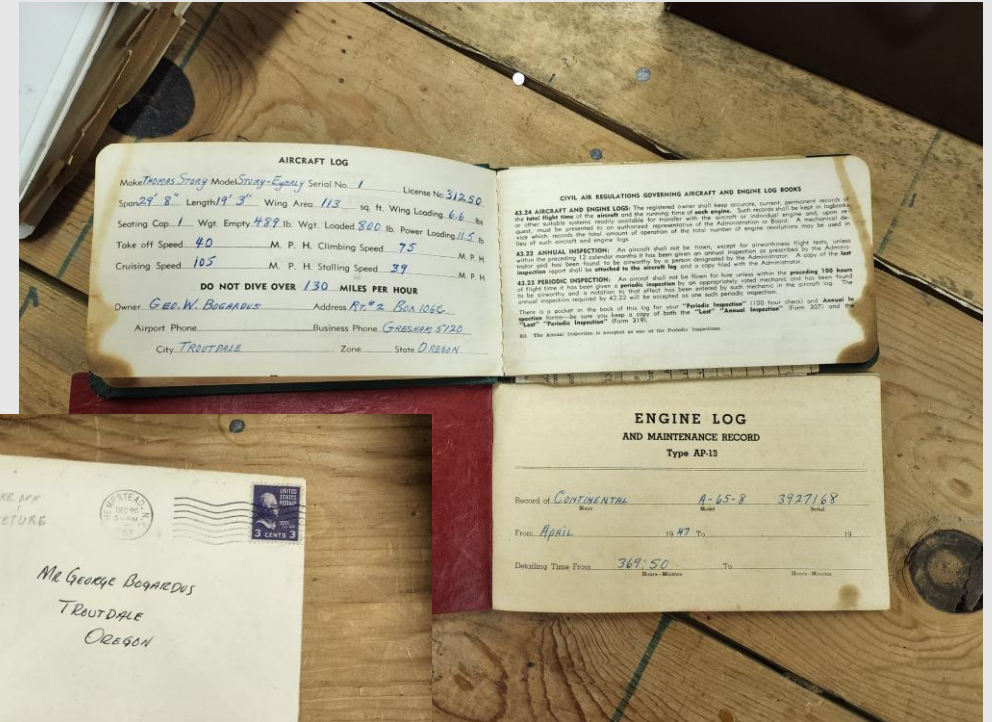 AIRCRAFT LOG
Make THOMAS STORY Model STORY-EYERLY Serial No. 1 License No. 31250
Span 29' 8" Length 19' 3" Wing Area 113 sq. ft. Wing Loading 6.6 lbs
Seating Cap. 1 Wgt. Empty 489 lb. Wgt. Loaded 800 lb. Power Loading 11.5 lb
Take off Speed 40 M. P. H. Climbing Speed 75 M. P. H.
Cruising Speed 105 M. P. H. Stalling Speed 39 M. P. H.
DO NOT DIVE OVER 130 MILES PER HOUR
Owner GEO. W. BOGARDUS Address RT. #2 BOX 1066
Airport Phone Business Phone GRESHAM 5120
City TROUTDALE Zone State OREGON
CIVIL AIR REGULATIONS GOVERNING AIRCRAFT AND ENGINE LOG BOOKS
43.24 AIRCRAFT AND ENGINE LOGS: The registered owner shall keep accurate, current, permanent records of
the total flight time of the aircraft and the running time of each engine. Such records shall be kept in logbooks
or other suitable systems readily available for transfer with the aircraft or individual engine and, upon re-
quest, must be presented to an authorized representative of the Administration or Board. A mechanical de-
vice which records the total amount of operation of the total number of engine revolutions may be used in
lieu of such aircraft and engine logs.
43.22 ANNUAL INSPECTION: An aircraft shall not be flown, except for airworthiness flight tests, unless
within the preceding 12 calendar months it has been given an annual inspection as prescribed by the Adminis-
trator and has been found to be airworthy by a person designated by the Administrator. A copy of the last
inspection report shall be attached to the aircraft log and a copy filed with the Administrator.
43.23 PERIODIC INSPECTION: An aircraft shall not be flown for hire unless within the preceding 100 hours
of flight time it has been given a periodic inspection by an appropriately rated mechanic and has been found
to be airworthy and a notation to that effect has been entered by such mechanic in the aircraft log. The
annual inspection required by 43.22 will be accepted as one such periodic inspection.
There is a pocket in the back of this log for your "Periodic Inspection" (100 hour check) and Annual In-
spection forms—be sure you keep a copy of both the "Last" "Annual Inspection" (Form 307) and the
"Last" "Periodic Inspection" (Form 319).
Ed. The Annual Inspection is accepted as one of the Periodic Inspections.
ENGINE LOG
AND MAINTENANCE RECORD
Type AP-13
Record of CONTINENTAL A-65-8 3927168
Make Model Serial
From APRIL 19 47 To 19
Detailing Time From 369:50 To
Hours—Minutes Hours—Minutes
HEMPSTEAD, N.Y.
DEC
UNITED
STATES
POSTAGE
3 CENTS 3
MR GEORGE BOGARDUS
TROUTDALE
OREGON